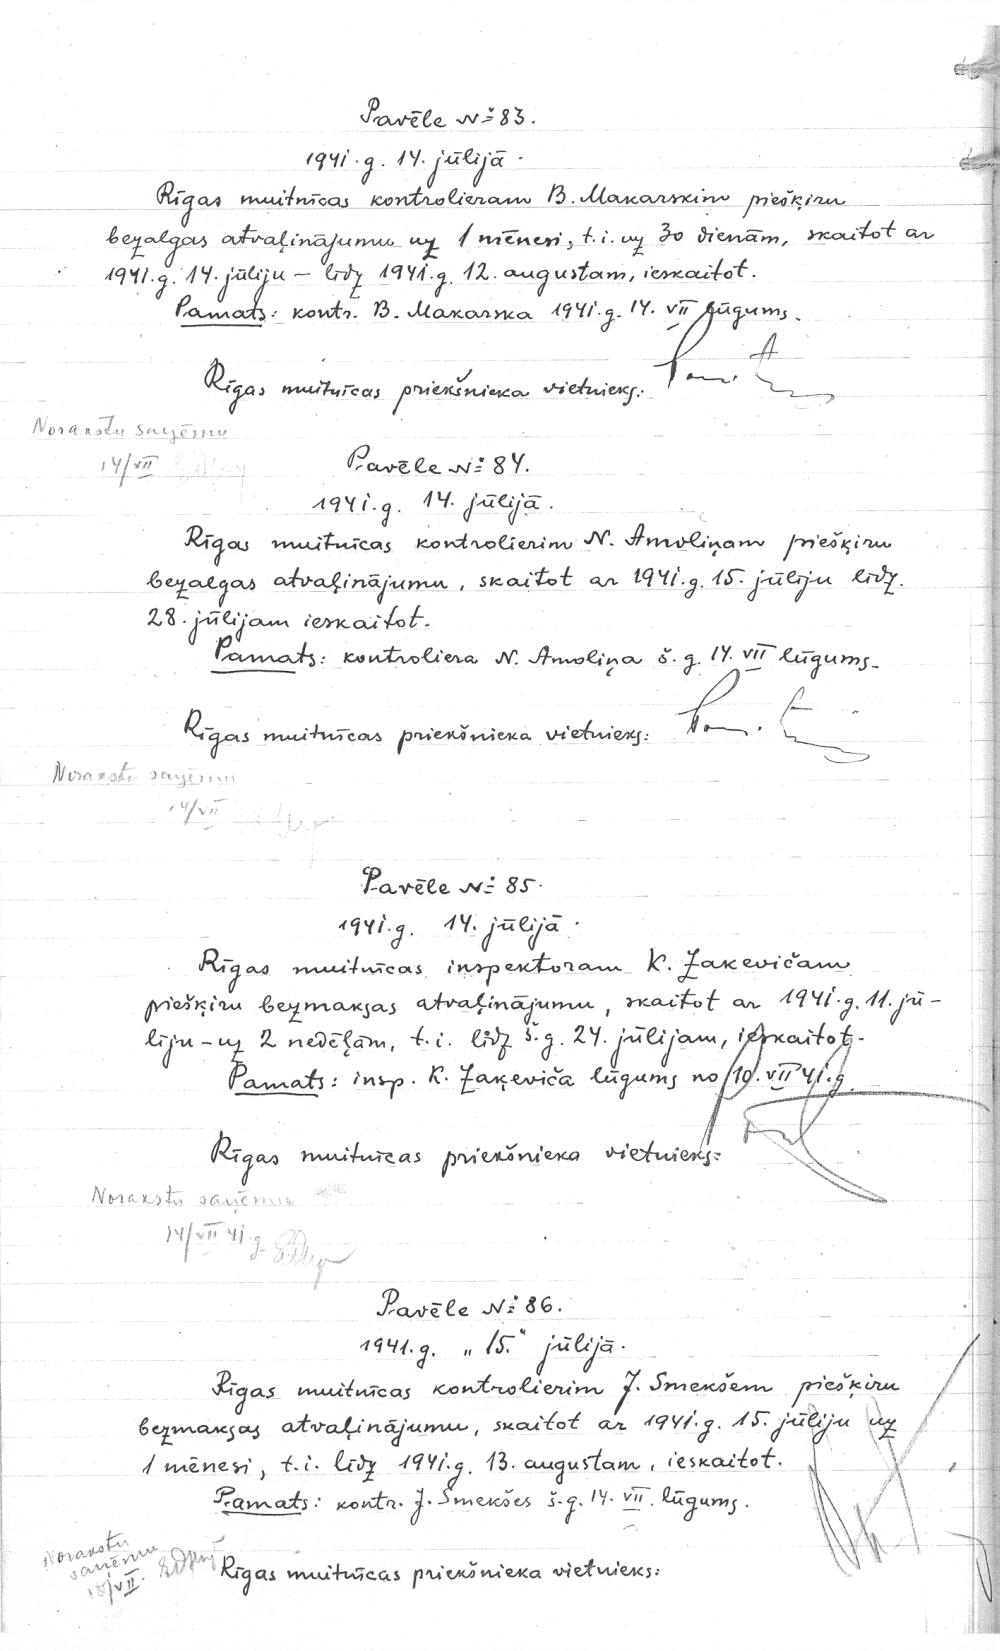 Pavēle № 83.
1941.g. 14. jūlijā.
Rīgas muitnīcas kontrolieram B. Makarskim piešķiru
bezalgas atvaļinājumu uz 1 mēnesi, t.i. uz 30 dienām, skaitot ar
1941.g. 14. jūliju – līdz 1941.g. 12. augustam, ieskaitot.
Pamats: kontr. B. Makarska 1941.g. 14. VII lūgums.
Rīgas muitnīcas priekšnieka vietnieks:
Norakstu saņēmu
14/VII
Pavēle № 84.
1941.g. 14. jūlijā.
Rīgas muitnīcas kontrolierim N. Amoliņam piešķiru
bezalgas atvaļinājumu, skaitot ar 1941.g. 15. jūliju līdz
28. jūlijam ieskaitot.
Pamats: kontroliera N. Amoliņa š.g. 14. VII lūgums.
Rīgas muitnīcas priekšnieka vietnieks:
Norakstu saņēmu
14/VII
Pavēle № 85.
1941.g. 14. jūlijā.
Rīgas muitnīcas inspektoram K. Zakevičam
piešķiru bezmaksas atvaļinājumu, skaitot ar 1941.g. 11. jū-
liju – uz 2 nedēļām, t.i. līdz š.g. 24. jūlijam, ieskaitot.
Pamats: insp. K. Zakeviča lūgums no 10. VII 41.g.
Rīgas muitnīcas priekšnieka vietnieks:
Norakstu saņēmu
14/VII 41.g.
Pavēle № 86.
1941.g. „15.“ jūlijā.
Rīgas muitnīcas kontrolierim J. Smekšem piešķiru
bezmaksas atvaļinājumu, skaitot ar 1941.g. 15. jūliju uz
1 mēnesi, t.i. līdz 1941.g. 13. augustam, ieskaitot.
Pamats: kontr. J. Smekšes š.g. 14. VII. lūgums.
Norakstu
saņēmu
15/VII.
Rīgas muitnīcas priekšnieka vietnieks: